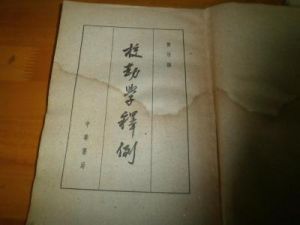 陳垣撰
校勘學釋例
中華書局